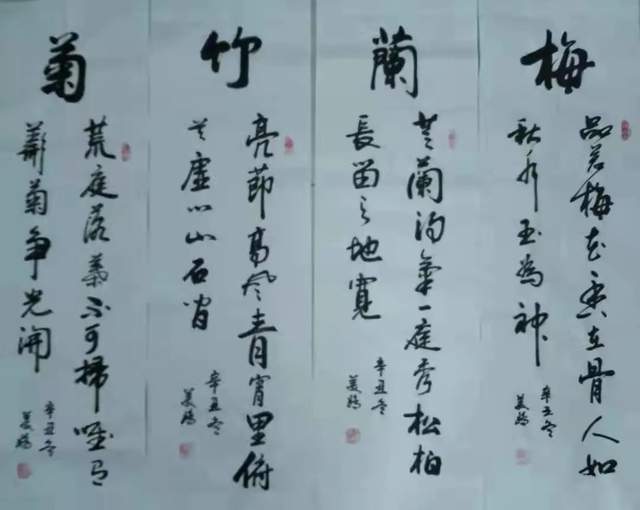 梅
品若梅花香在骨人如
秋水玉為神
辛丑冬
美
蘭
芝蘭得氣一庭秀松柏
長留之地寬
辛丑冬
美
竹
亮節高風青宵里俯
首虛心山石間
辛丑冬
美
菊
荒庭落葉不可掃唯有
菊争光開
辛丑冬
美